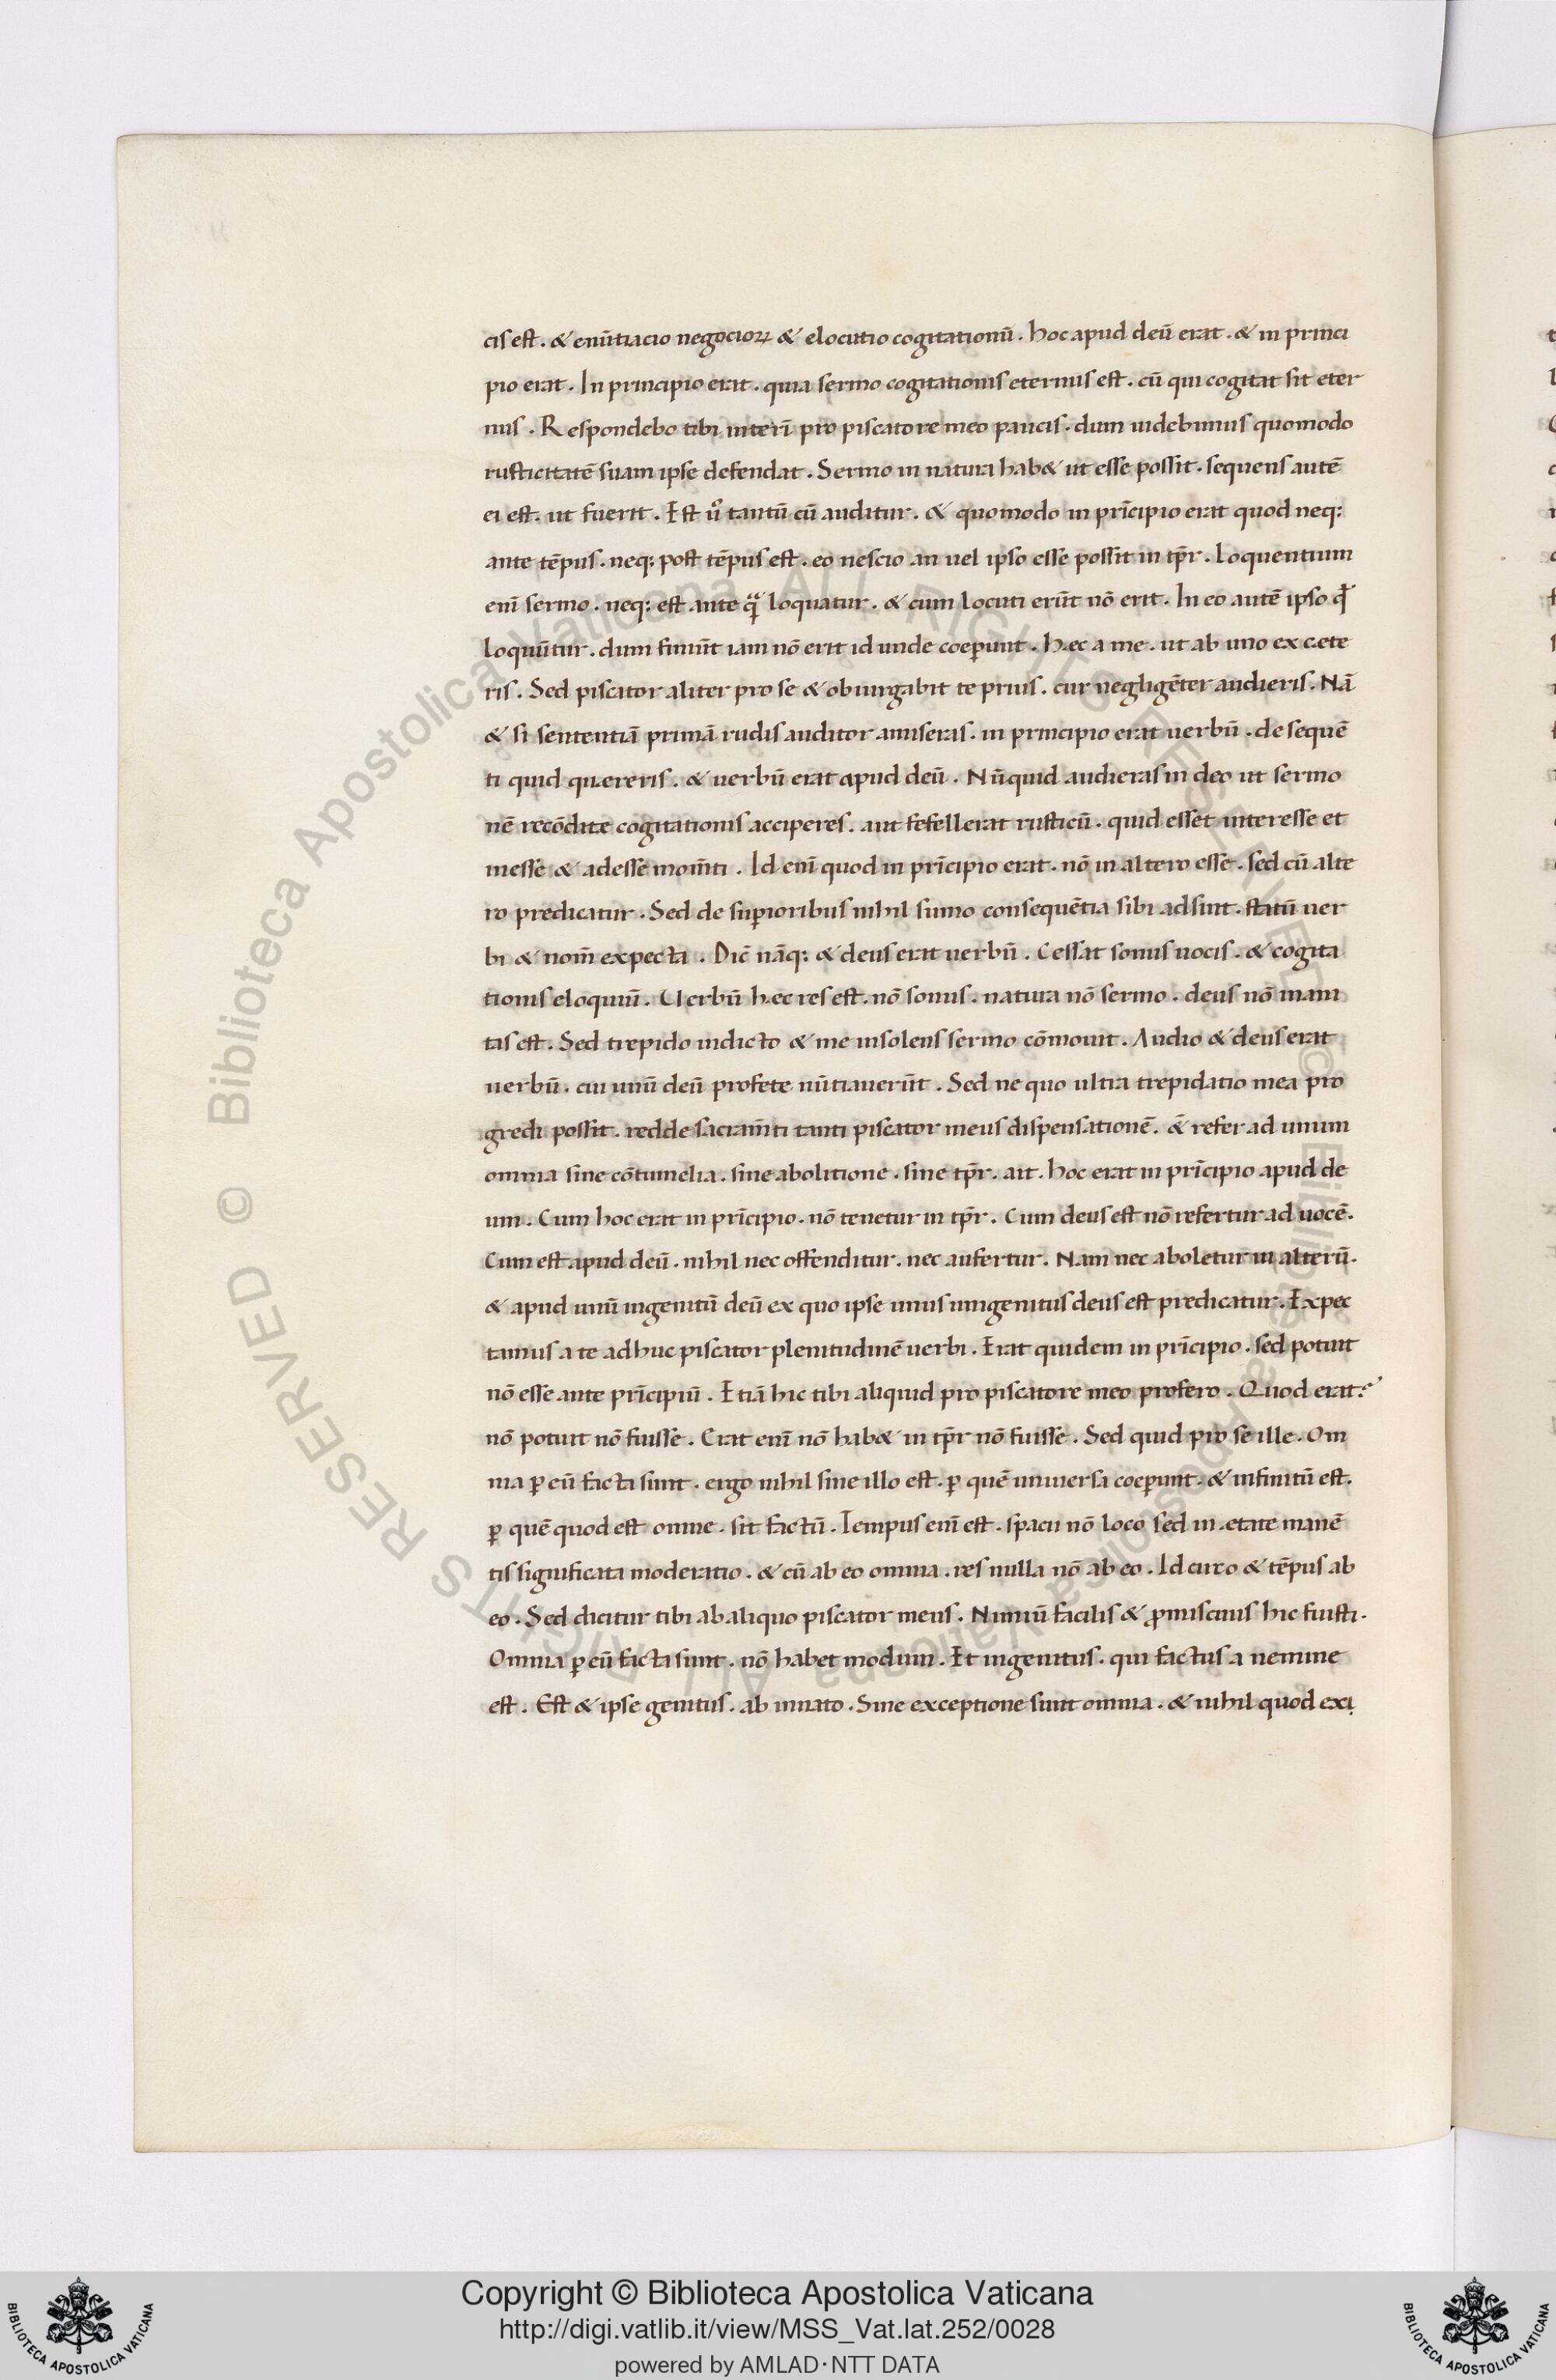 cis est . & enūtiacio negocioꝝ & elocutio cogitationū . hoc apud deū erat . & in princi
pio erat . In principio erat . quia sermo cogitationis eternus est . cū qui cogitat sit eter
nus . Respondebo tibi interī pro piscatore meo paucis . dum uidebimus quomodo
rusticitatē suam ipse defendat . Sermo in natura hab& ut esse possit . sequens autē
ei est . ut fuerit . Est ūo tantū cū auditur . & quomodo in prīcipio erat quod neq:
ante tēpus . neq: post tēpus est . eo nescio an uel ipso esse possit in tp̄r . Loquentium
enī sermo . neq: est ante q̄ loquatur . & cum locuti erūt nō erit . In eo autē ipso qđ
loquūtur . dum finiūt iam nō erit id unde coeperunt . hęc a me . ut ab uno ex cęte
ris . Sed piscator aliter pro se & obiurgabit te prius . cur neghgēter audieris . Nā
& si sententiā primā rudis auditor amiseras . in principio erat uerbū . de sequē
ti quid quęreris . & uerbū erat apud deū . Nūquid audieras in deo ut sermo
nē recōditæ cogitationis acciperes . aut fefellerat rusticū . quid esset interesse et
inesse & adesse mom̄ti . Id enī quod in prīcipio erat . nō in altero esse . sed cū alte
ro predicatur . Sed de suꝑioribus nihil sumo consequētia sibi adsint . statū uer
bi & nom̄ expecta . Dic̄ nāq: & deus erat uerbū . Cessat sonus uocis . & cogita
tionis eloquiū . Uerbū hęc res est . nō sonus . natura nō sermo . deus nō inani
tas est . Sed trepido indicto & me insolens sermo cōmouit . Audio & deus erat
uerbū . cui unū deū profete nūtiauerūt . Sed ne quo ultra trepidatio mea pro
gredi possit . redde sacram̄ti tanti piscator meus dispensationē . & refer ad unum
omnia sine cōtumelia . sine abolitione . sine tp̄r . ait . hoc erat in prīcipio apud de
um . Cum hoc erat in prīcipio . nō tenetur in tp̄r . Cum deus est nō refertur ad uocē .
Cum est apud deū . nihil nec offenditur . nec aufertur . Nam nec aboletur in alterū .
& apud unū ingenitū deū ex quo ipse unus unigenitus deus est predicatur . Expec
tamus a te adhuc piscator plenitudinē uerbi . Erat quidem in prīcipio . sed potuit
nō esse ante prīcipiū . Etiā hic tibi aliquid pro piscatore meo profero . Quod erat .
nō potuit nō fuisse . Erat enī nō hab& in tp̄r nō fuisse . Sed quid pro se ille . Om
nia ꝑ eū facta sunt . ergo nihil sine illo est . ꝑ quē uniuersa coeperunt . & infinitū est .
ꝑ quē quod est omne . sit factū . Tempus enī est . spacii nō loco sed in ętate manē
tis significata moderatio . & cū ab eo omnia . res nulla nō ab eo . Id circo & tēpus ab
eo . Sed dicitur tibi ab aliquo piscator meus . Nimiū facilis & ꝓmiscuus hic fuisti .
Omnia ꝑ eū facta sunt . nō habet modum . Et ingenitus . qui factus a nemine
est . Est & ipse genitus . ab innato . Sine exceptione sunt omnia . & nihil quod exi
© Biblioteca Apostolica Vaticana ALL RIGHTS RESERVED
© Biblioteca Apostolica Vaticana ALL RIGHTS RESERVED
BIBLIOTECA APOSTOLICA VATICANA
Copyright © Biblioteca Apostolica Vaticana
http://digi.vatlib.it/view/MSS_Vat.lat.252/0028
powered by AMLAD·NTT DATA
BIBLIOTECA APOSTOLICA VATICANA